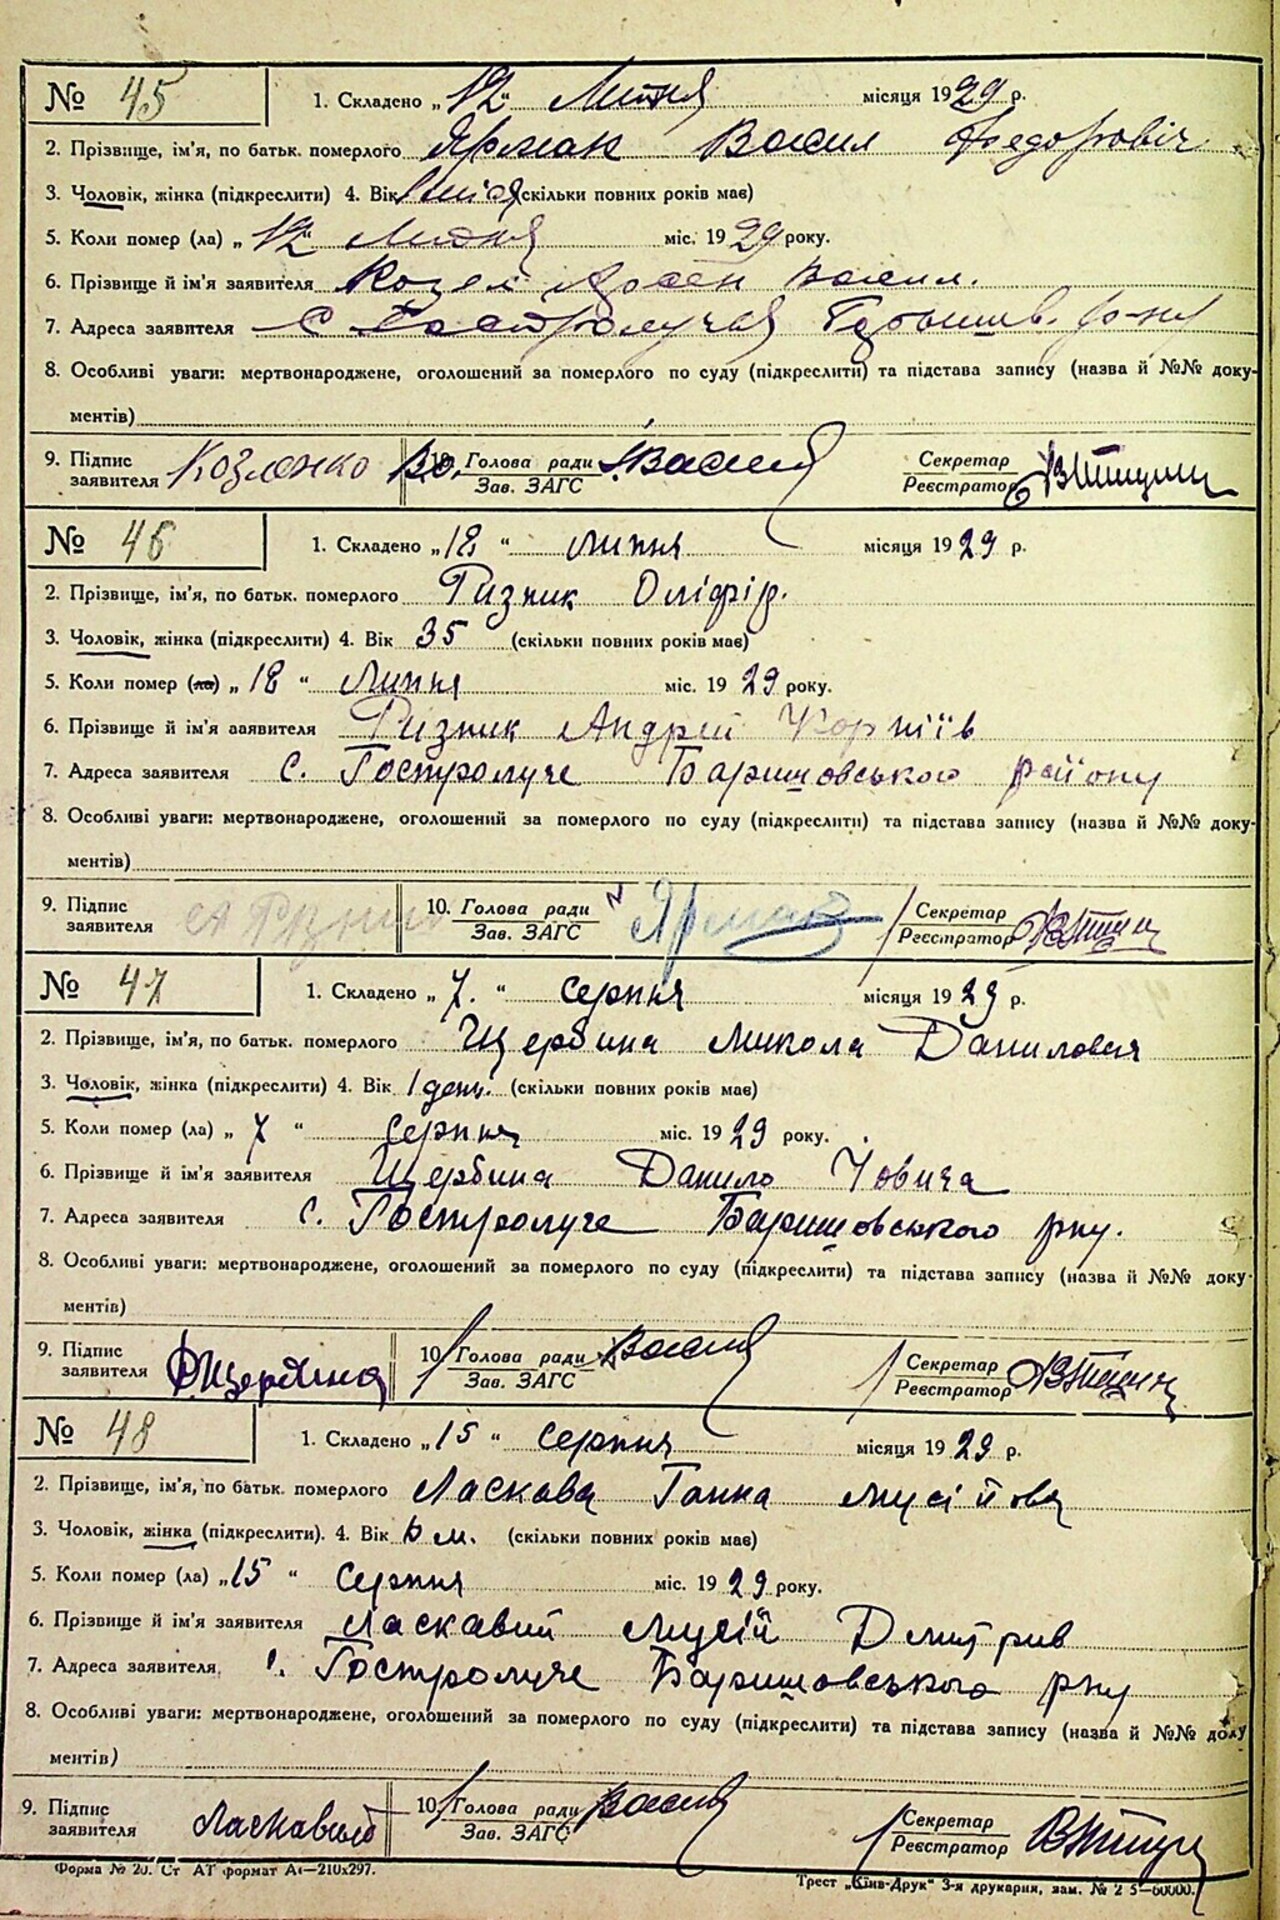 № 45 1. Складено „12“ Липня місяця 1929 р.
2. Прізвище, ім'я, по батьк. померлого Ярмак Васил Федоровіч
3. Чоловік, жінка (підкреслити) 4. Вік (скільки повних років має)
5. Коли помер (ла) „12“ Липня міс. 1929 року.
6. Прізвище й ім'я заявителя Васил.
7. Адреса заявителя с Гостролучья
8. Особливі уваги: мертвонароджене, оголошений за померлого по суду (підкреслити) та підстава запису (назва й №№ доку-
ментів)
9. Підпис заявителя Козленко 10. Голова ради Зав. ЗАГС Секретар Реєстратор
№ 46 1. Складено „18“ липня місяця 1929 р.
2. Прізвище, ім'я, по батьк. померлого Ризник Оліфір.
3. Чоловік, жінка (підкреслити) 4. Вік 35 (скільки повних років має)
5. Коли помер (ла) „18“ Липня міс. 1929 року.
6. Прізвище й ім'я заявителя Ризник Андрій Корніїв
7. Адреса заявителя с. Гостролуче Баришовського району
8. Особливі уваги: мертвонароджене, оголошений за померлого по суду (підкреслити) та підстава запису (назва й №№ доку-
ментів)
9. Підпис заявителя А Ризник 10. Голова ради Зав. ЗАГС Ярмак Секретар Реєстратор
№ 47 1. Складено „7.“ серпня місяця 1929 р.
2. Прізвище, ім'я, по батьк. померлого Щербина Микола Данилович
3. Чоловік, жінка (підкреслити) 4. Вік 1 день. (скільки повних років має)
5. Коли помер (ла) „7“ Серпня міс. 1929 року.
6. Прізвище й ім'я заявителя Щербина Данило Йовича
7. Адреса заявителя с. Гостролуче Баришовського рну.
8. Особливі уваги: мертвонароджене, оголошений за померлого по суду (підкреслити) та підстава запису (назва й №№ доку-
ментів)
9. Підпис заявителя Д. Щербина 10. Голова ради Зав. ЗАГС Секретар Реєстратор
№ 48 1. Складено „15“ серпня місяця 1929 р.
2. Прізвище, ім'я, по батьк. померлого Ласкава Ганна Мусійова
3. Чоловік, жінка (підкреслити). 4. Вік 6 м. (скільки повних років має)
5. Коли помер (ла) „15“ Серпня міс. 1929 року.
6. Прізвище й ім'я заявителя Ласкавий Мусій Дмитрив
7. Адреса заявителя с. Гостролуче Баришовського рну
8. Особливі уваги: мертвонароджене, оголошений за померлого по суду (підкреслити) та підстава запису (назва й №№ доку
ментів)
9. Підпис заявителя Ласкавий 10. Голова ради Зав. ЗАГС Секретар Реєстратор
Форма № 20. Ст АТ формат А4—210х297.
Трест „Київ-Друк“ 3-я друкарня, зам. № 2 5—60000.